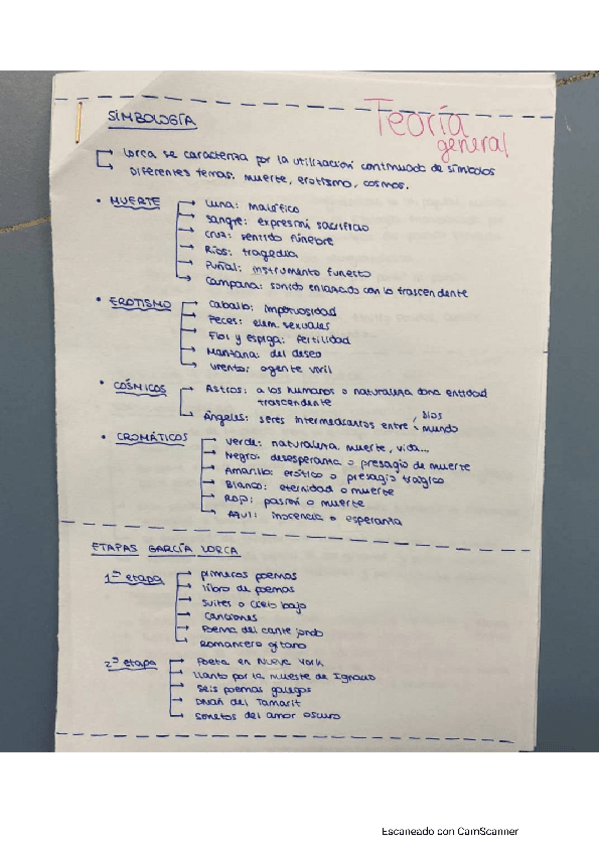 Teoría
general
SIMBOLOGÍA
Lorca se caracteriza por la utilización continuada de símbolos
Diferentes temas: muerte, erotismo, cosmos.
• MUERTE
Luna: maléfico
Sangre: expresión sacrificio
Cruz: sentido fúnebre
Ríos: tragedia
Puñal: instrumento funesto
Campana: sonido enlazado con lo trascendente
• EROTISMO
Caballo: impetuosidad
Peces: elem. sexuales
Flor y espiga: fertilidad
Manzana: del deseo
Viento: agente viril
• CÓSMICOS
Astros: a los humanos o naturaleza dona entidad
trascendente
Ángeles: seres intermediarios entre dios
mundo
• CROMÁTICOS
Verde: naturaleza, muerte, vida...
Negro: desesperanza o presagio de muerte
Amarillo: erótico o presagio trágico
Blanco: eternidad o muerte
Rojo: pasión o muerte
Azul: inocencia o esperanza
ETAPAS GARCÍA LORCA
1ª etapa
primeros poemas
libro de poemas
Suites o cielo bajo
Canciones
Poema del cante jondo
Romancero gitano
2ª etapa
Poeta en Nueva York
Llanto por la muerte de Ignacio
Seis poemas galegos
Diván del Tamarit
Sonetos del amor oscuro
Escaneado con CamScanner